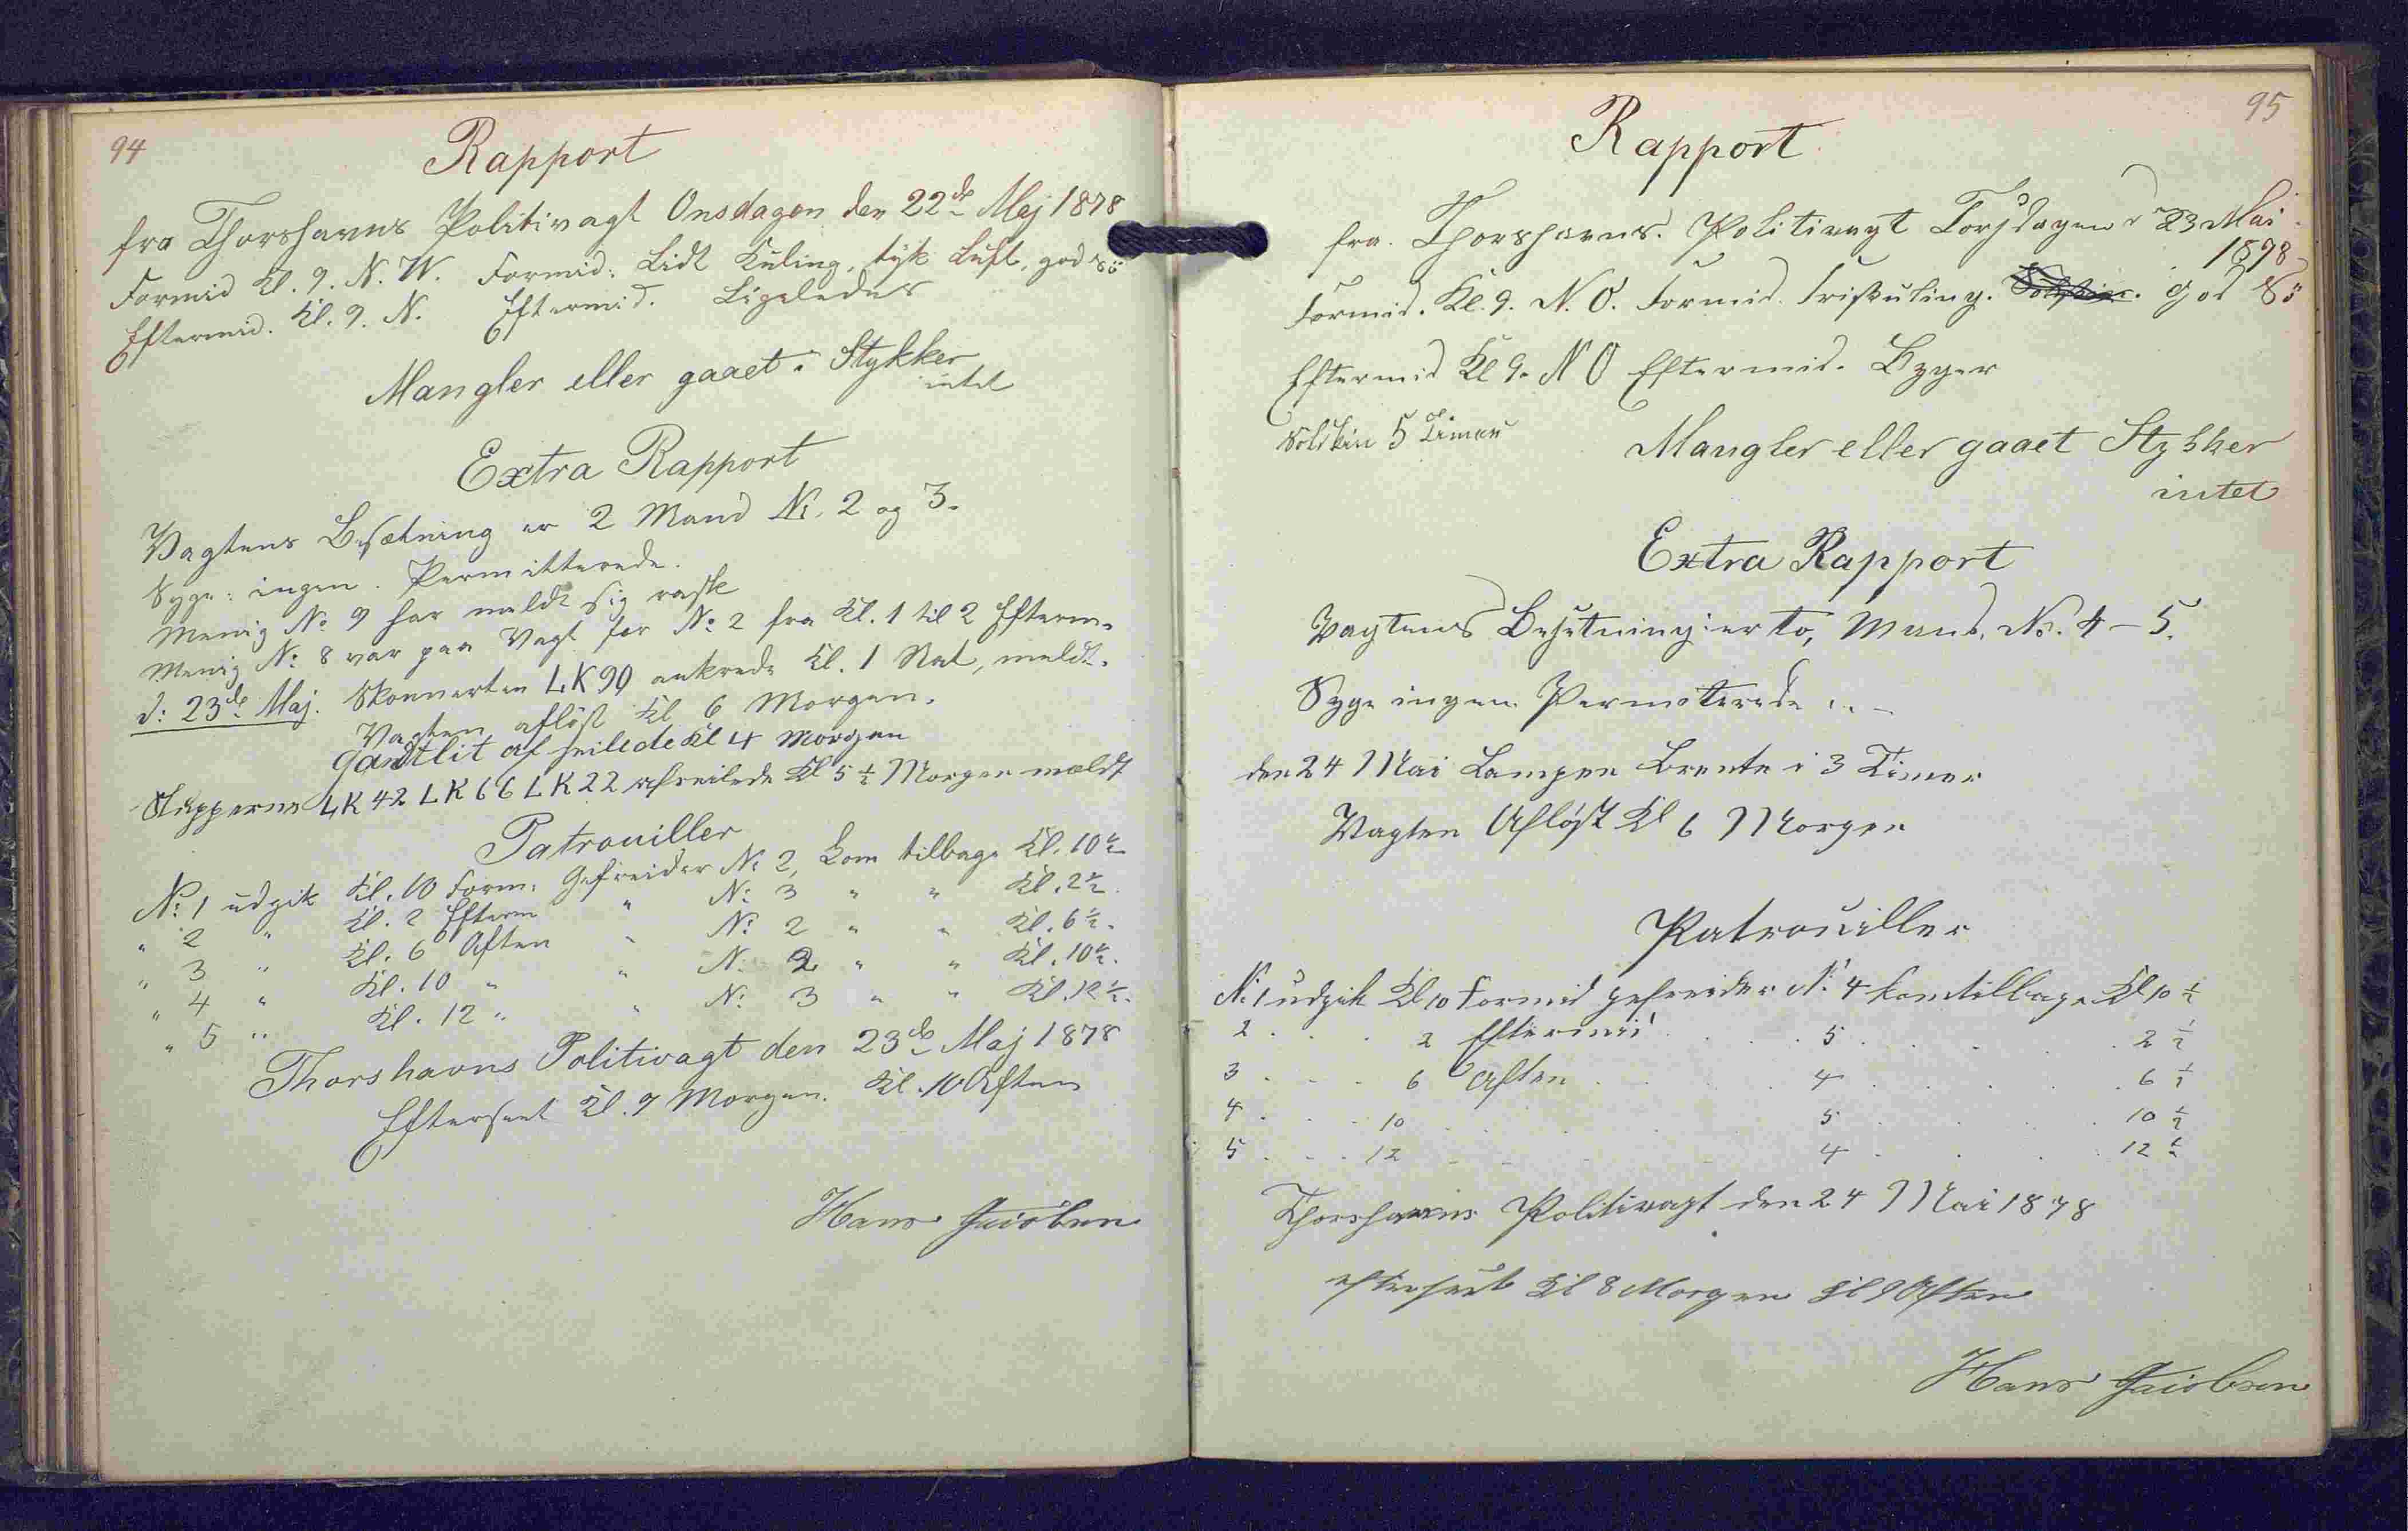 94
Rapport
fra Thorshavns Politivagt Onsdagen den 22de Maj 1878
Formid Kl. 9. N. W. Formid: Lidt Kuling, tÿk Luft, god Sö
Eftermid. Kl. 9. N. Eftermid. Ligeledes
Mangler eller gaaet i Stykker
intet
Extra Rapport
Vagtens Besætning er 2 Mand No. 2 og 3.
Syge: ingen. Permitterede.
Menig No 9 har meldt sig rask
Menig No 8 var paa Vagt for No 2 fra Kl. 1 til 2 Efterm.
d: 23de Maj. Skonnerten LK 90 ankrede Kl. 1 Nat, meldt.
Vagten aflöst Kl 6 Morgen.
af seilede Kl 4 Morgen
Slupperne LK 42 LK 66 LK 22 afseilede Kl 5 1/2 Morgen meldt
Patrouiller
No: 1 udgik Kl. 10 Form: Gefreider No 2, kom tilbage Kl. 10 1/2
" 2 " Kl. 2 Efterm " No: 3 " " Kl. 2 1/2.
" 3 " Kl. 6 Aften " No: 2 " " Kl. 6 1/2.
" 4 " Kl. 10 " " N: 2 " " Kl. 10 1/2.
" 5 " Kl. 12 " " N: 3 " " Kl. 12 1/2.
Thorshavns Politivagt den 23de Maj 1878
Efterseet Kl. 9 Morgen. Kl. 10 Aften
Hans Jacobsen
95
Rapport
fra. Thorshavns. Politivagt Torsdagen d 23 Mai
1878
Formid. Kl. 9. N. O. Formid. Friskuling. god Sö
Eftermid Kl 9. N O Eftermid. Byger
Solskin 5 Timer
Mangler eller gaaet Stykker
intet
Extra Rapport
Vagtens Besetning er to, Mand, No. 4 – 5.
Syge ingen Permoterede " –
den 24 Mai Lampen Brente i 3 Timer
Vagten Afløst Kl 6 Morgen
Patrouiller
No 1 udgik Kl 10 Formid gefreider No 4 kom tilbage Kl 10 1/2
2 . . . 2 Eftermid . . . 5 . . . . 2 1/2
3 . . . 6 Aften . . . 4 . . . . 6 1/2
4 . . . 10 . . . 5 . . . . 10 1/2
5 . . . 12 . . . 4 . . . . 12 1/2
Thorshavns Politivagt den 24 Mai 1878
efterseet Kl 8 Morgen Kl 9 Aften
Hans Jacobsen